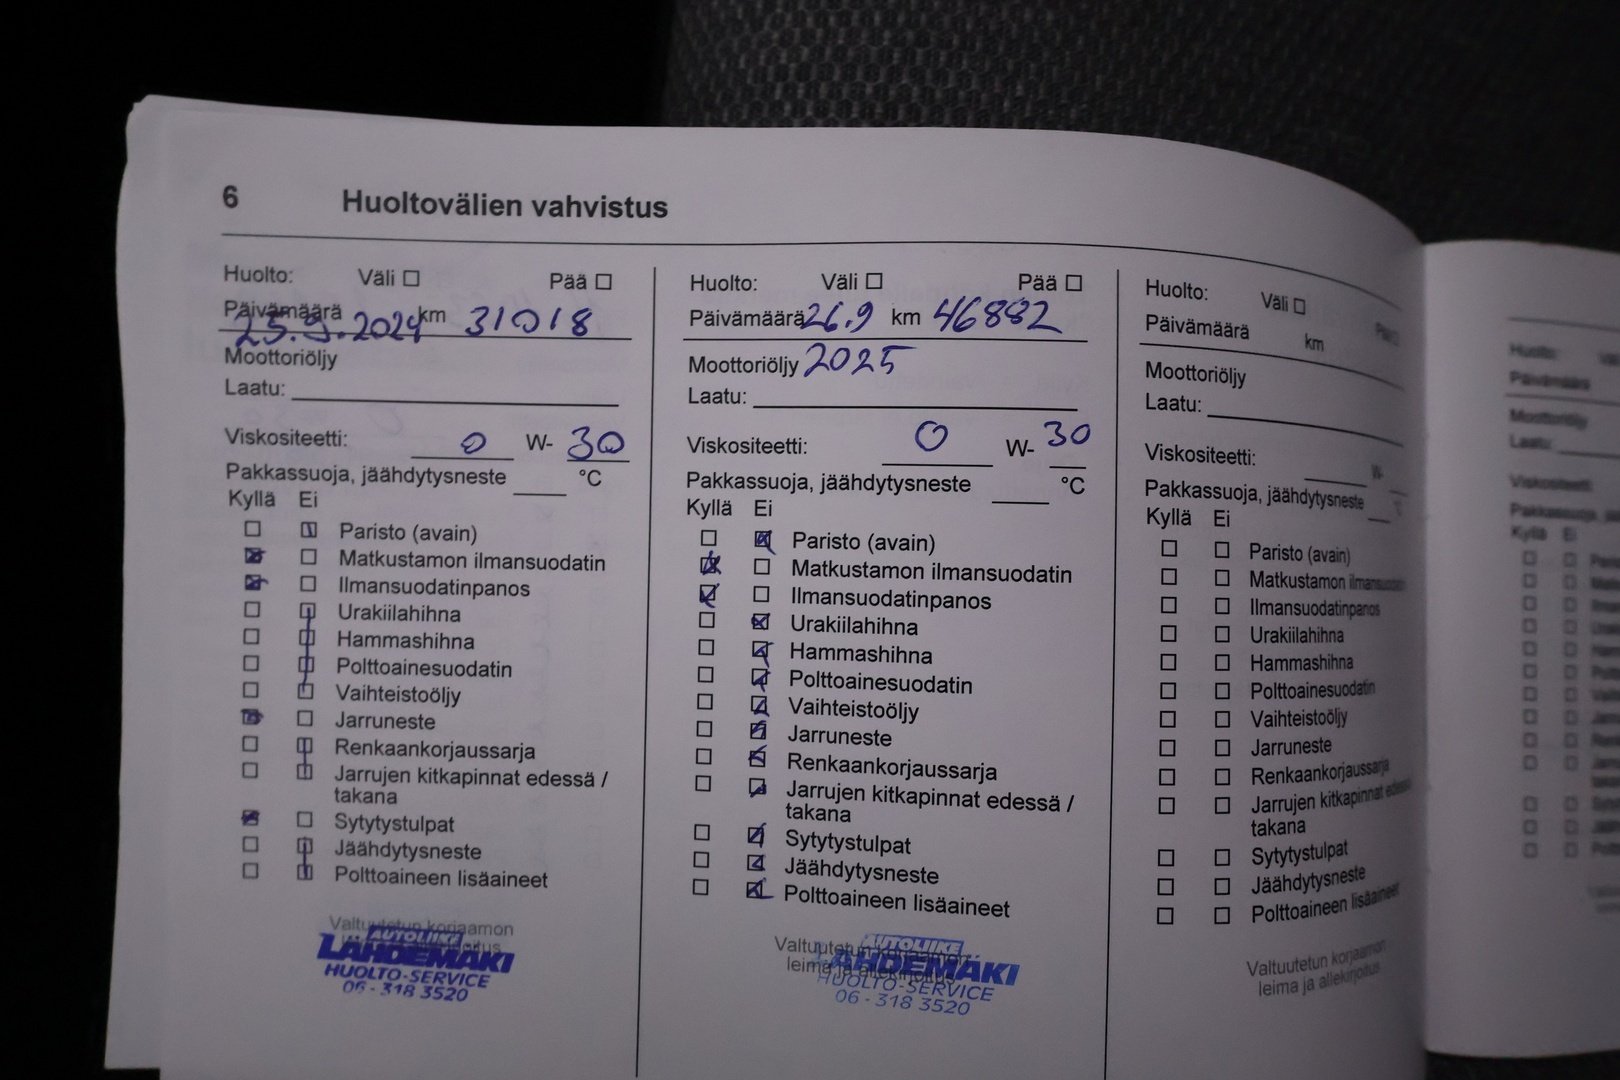 6 Huoltovälien vahvistus
Huolto: Väli Pää
Päivämäärä 23.9.2024 km 31018
Moottoriöljy
Laatu:
Viskositeetti: 0 W- 30
Pakkassuoja, jäähdytysneste °C
Kyllä Ei
Paristo (avain)
Matkustamon ilmansuodatin
Ilmansuodatinpanos
Urakiilahihna
Hammashihna
Polttoainesuodatin
Vaihteistoöljy
Jarruneste
Renkaankorjaussarja
Jarrujen kitkapinnat edessä /
takana
Sytytystulpat
Jäähdytysneste
Polttoaineen lisäaineet
Valtuutetun korjaamon
AUTOLIIKE
LÄHDEMÄKI
HUOLTO-SERVICE
06 - 318 3520
Huolto: Väli Pää
Päivämäärä 26.9 km 46882
Moottoriöljy 2025
Laatu:
Viskositeetti: 0 W- 30
Pakkassuoja, jäähdytysneste °C
Kyllä Ei
Paristo (avain)
Matkustamon ilmansuodatin
Ilmansuodatinpanos
Urakiilahihna
Hammashihna
Polttoainesuodatin
Vaihteistoöljy
Jarruneste
Renkaankorjaussarja
Jarrujen kitkapinnat edessä /
takana
Sytytystulpat
Jäähdytysneste
Polttoaineen lisäaineet
Valtuutetun korjaamon
leima ja allekirjoitus
AUTOLIIKE
LÄHDEMÄKI
HUOLTO-SERVICE
06 - 318 3520
Huolto: Väli Pää
Päivämäärä km
Moottoriöljy
Laatu:
Viskositeetti: W-
Pakkassuoja, jäähdytysneste °C
Kyllä Ei
Paristo (avain)
Matkustamon ilmansuodatin
Ilmansuodatinpanos
Urakiilahihna
Hammashihna
Polttoainesuodatin
Vaihteistoöljy
Jarruneste
Renkaankorjaussarja
Jarrujen kitkapinnat edessä
takana
Sytytystulpat
Jäähdytysneste
Polttoaineen lisäaineet
Valtuutetun korjaamon
leima ja allekirjoitus
Huolto:
Päivämäärä
Moottoriöljy
Laatu:
Viskositeetti
Kyllä Ei